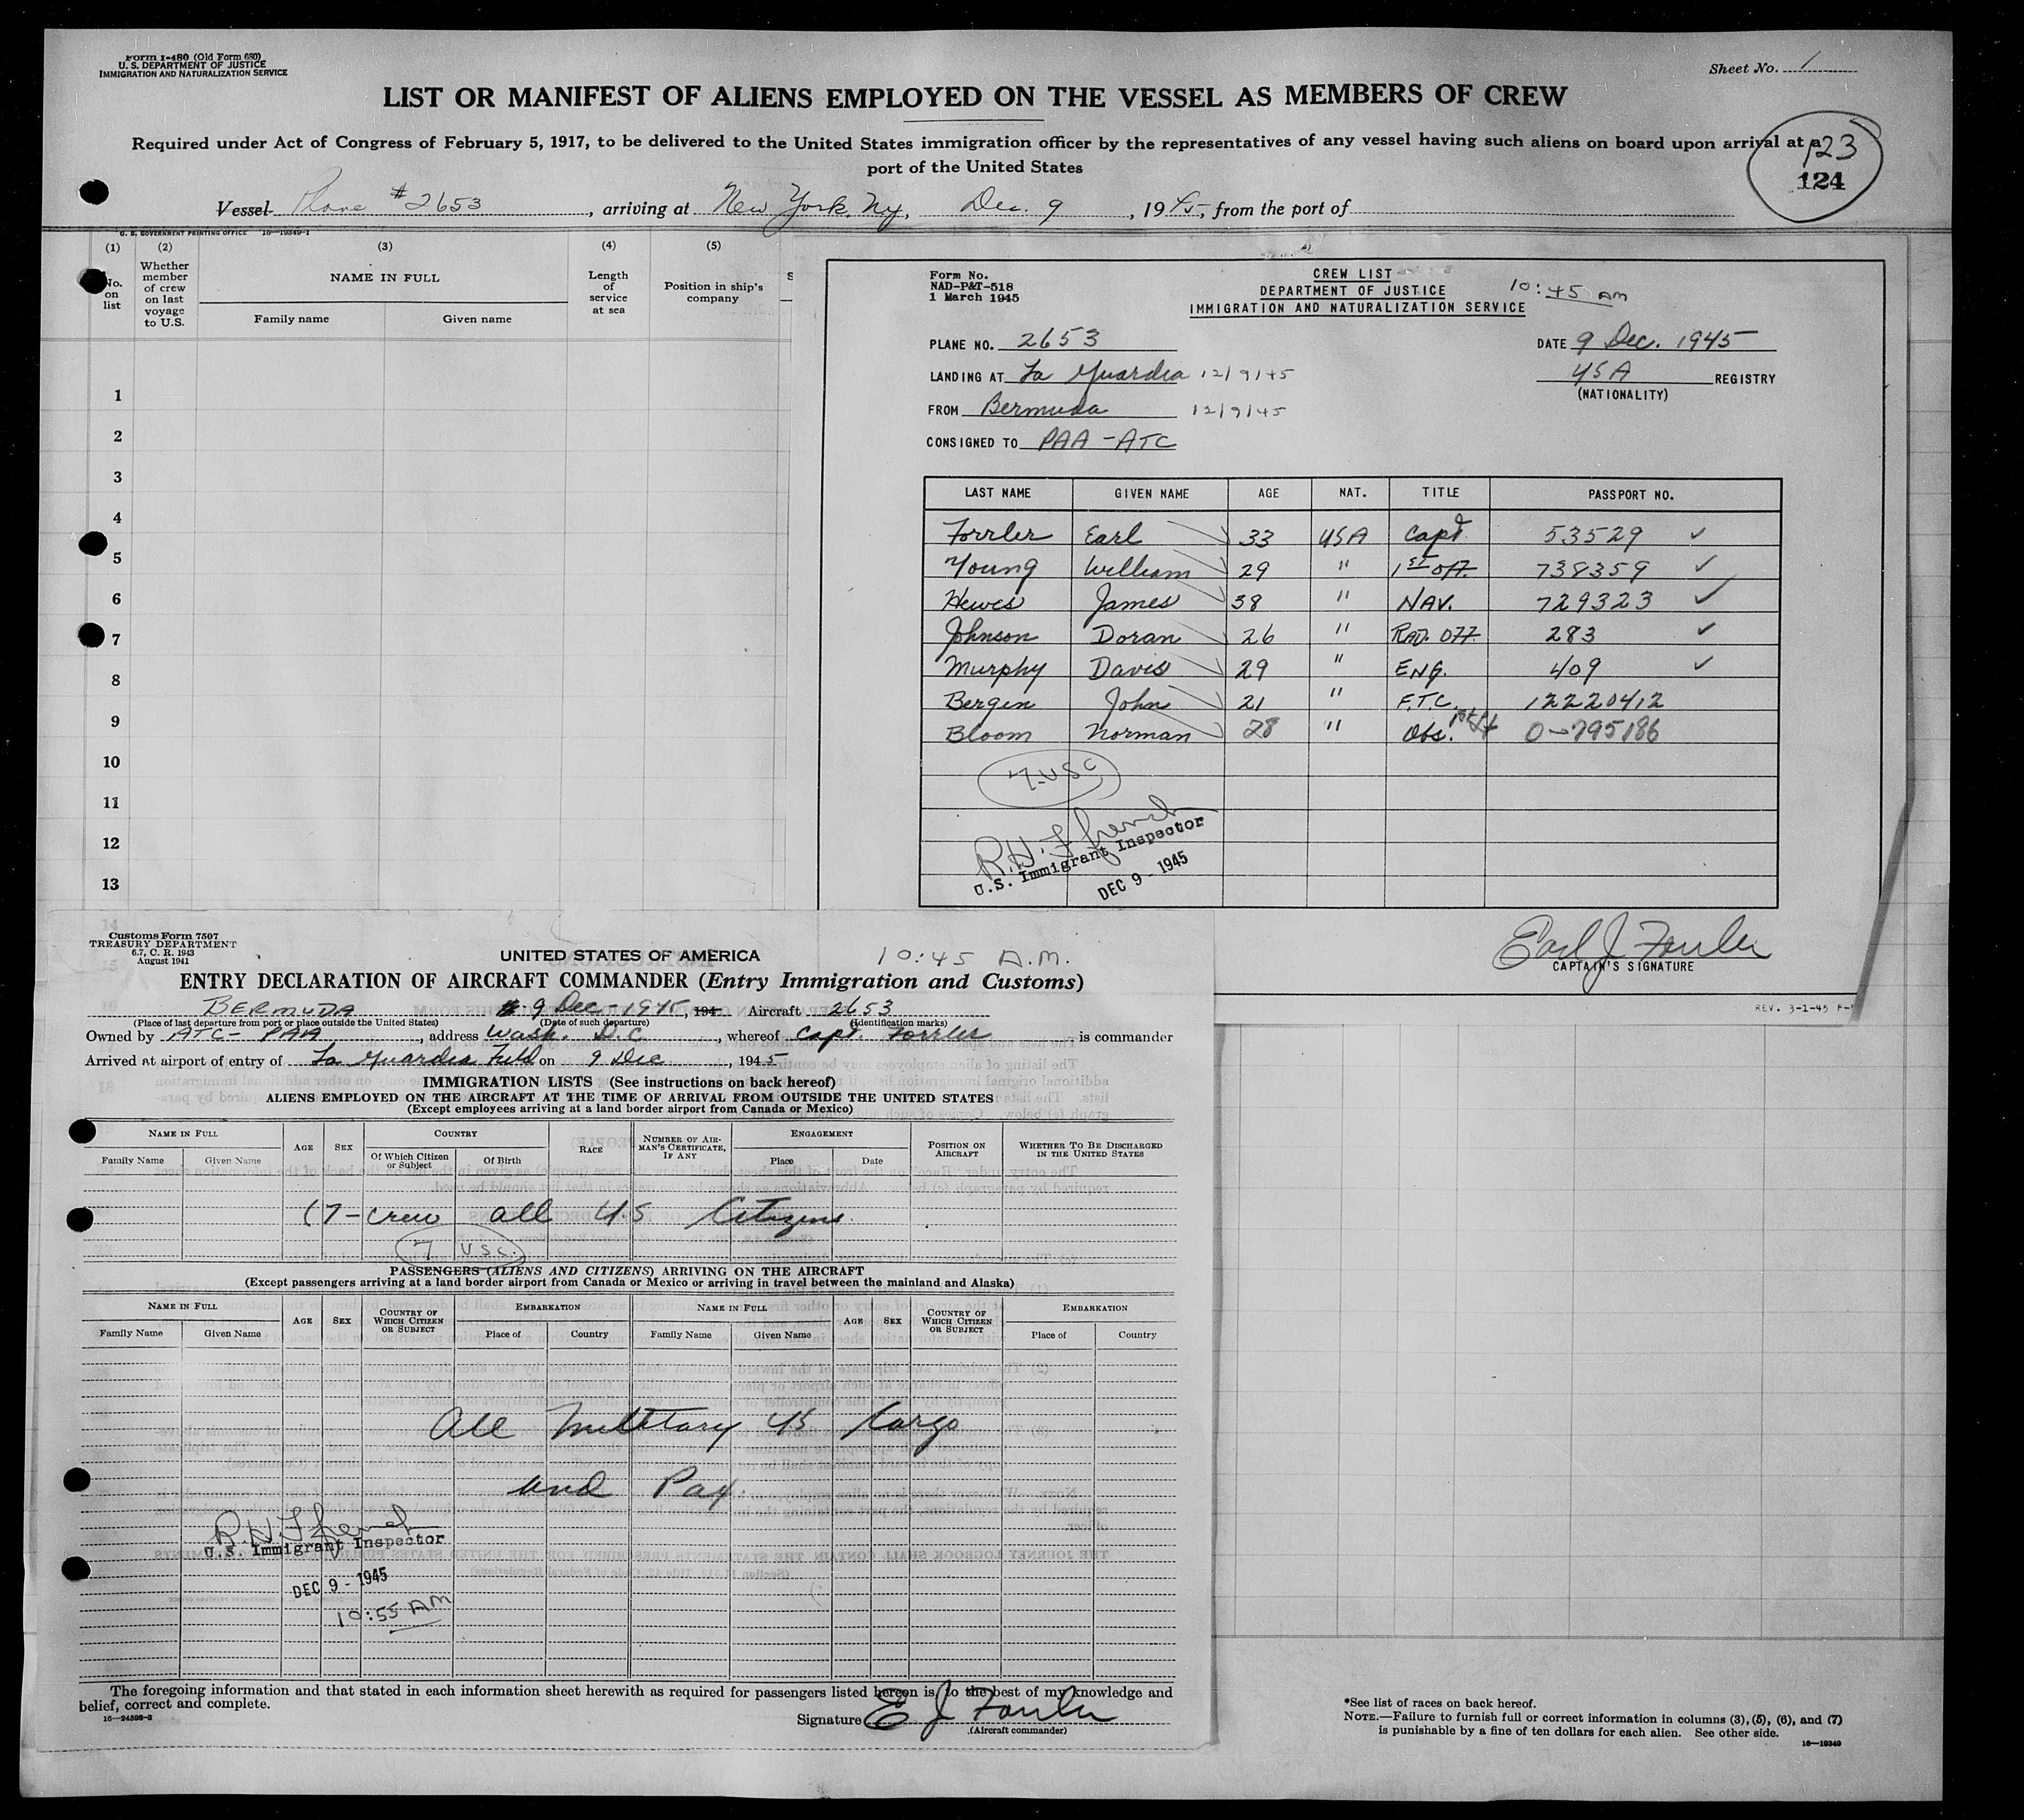 Form I-480 (Old Form 680)
U. S. DEPARTMENT OF JUSTICE
IMMIGRATION AND NATURALIZATION SERVICE
Sheet No. 1
LIST OR MANIFEST OF ALIENS EMPLOYED ON THE VESSEL AS MEMBERS OF CREW
Required under Act of Congress of February 5, 1917, to be delivered to the United States immigration officer by the representatives of any vessel having such aliens on board upon arrival at a
port of the United States
123
124
Vessel Plane #2653, arriving at New York, Ny, Dec. 9, 1945, from the port of
U. S. GOVERNMENT PRINTING OFFICE 16-19349-1
(1) (2) (3) (4) (5)
No. on list Whether member of crew on last voyage to U.S. NAME IN FULL Length of service at sea Position in ship's company S
Family name Given name
1
2
3
4
5
6
7
8
9
10
11
12
13
Form No.
NAD-P&T-518
1 March 1945
CREW LIST
DEPARTMENT OF JUSTICE
IMMIGRATION AND NATURALIZATION SERVICE
10:45 AM
PLANE NO. 2653 DATE 9 Dec. 1945
LANDING AT La Guardia 12/9/45 USA REGISTRY
(NATIONALITY)
FROM Bermuda 12/9/45
CONSIGNED TO PAA-ATC
LAST NAME GIVEN NAME AGE NAT. TITLE PASSPORT NO.
Forrler Earl 33 USA Capt. 53529 ✓
Young William 29 " 1st off. 738359 ✓
Hewes James 38 " NAV. 729323 ✓
Johnson Doran 26 " RAD. OFF. 283 ✓
Murphy Davis 29 " ENG. 409 ✓
Bergen John 21 " F.T.C. 12220412
Bloom Norman 28 " Obs. 1st Lt 0-795186
7-USC
R.H. French
U.S. Immigrant Inspector
DEC 9 - 1945
Earl J Forrler
CAPTAIN'S SIGNATURE
REV. 3-2-45
Customs Form 7507
TREASURY DEPARTMENT
6.7, C. R. 1943
August 1941
UNITED STATES OF AMERICA
10:45 A.M.
ENTRY DECLARATION OF AIRCRAFT COMMANDER (Entry Immigration and Customs)
BERMUDA 9 Dec-1945, 194 Aircraft 2653
(Place of last departure from port or place outside the United States) (Date of such departure) (Identification marks)
Owned by ATC- PAA, address Wash. D.C., whereof Capt. Forrler is commander
Arrived at airport of entry of La Guardia Field on 9 Dec, 1945
IMMIGRATION LISTS (See instructions on back hereof)
ALIENS EMPLOYED ON THE AIRCRAFT AT THE TIME OF ARRIVAL FROM OUTSIDE THE UNITED STATES
(Except employees arriving at a land border airport from Canada or Mexico)
NAME IN FULL AGE SEX COUNTRY RACE NUMBER OF AIRMAN'S CERTIFICATE, IF ANY ENGAGEMENT POSITION ON AIRCRAFT WHETHER TO BE DISCHARGED IN THE UNITED STATES
Family Name Given Name Of Which Citizen or Subject Of Birth Place Date
(7-crew all US Citizens.
7 USC.
PASSENGERS (ALIENS AND CITIZENS) ARRIVING ON THE AIRCRAFT
(Except passengers arriving at a land border airport from Canada or Mexico or arriving in travel between the mainland and Alaska)
NAME IN FULL AGE SEX COUNTRY OF WHICH CITIZEN OR SUBJECT EMBARKATION NAME IN FULL AGE SEX COUNTRY OF WHICH CITIZEN OR SUBJECT EMBARKATION
Family Name Given Name Place of Country Family Name Given Name Place of Country
All Military US Cargo
and Pax.
R.H. French
U.S. Immigrant Inspector
DEC 9 - 1945
10:55 AM
The foregoing information and that stated in each information sheet herewith as required for passengers listed hereon is, to the best of my knowledge and
belief, correct and complete.
16-24598-3
Signature E J Forrler
(Aircraft commander)
*See list of races on back hereof.
NOTE.—Failure to furnish full or correct information in columns (3), (5), (6), and (7)
is punishable by a fine of ten dollars for each alien. See other side.
16-19349